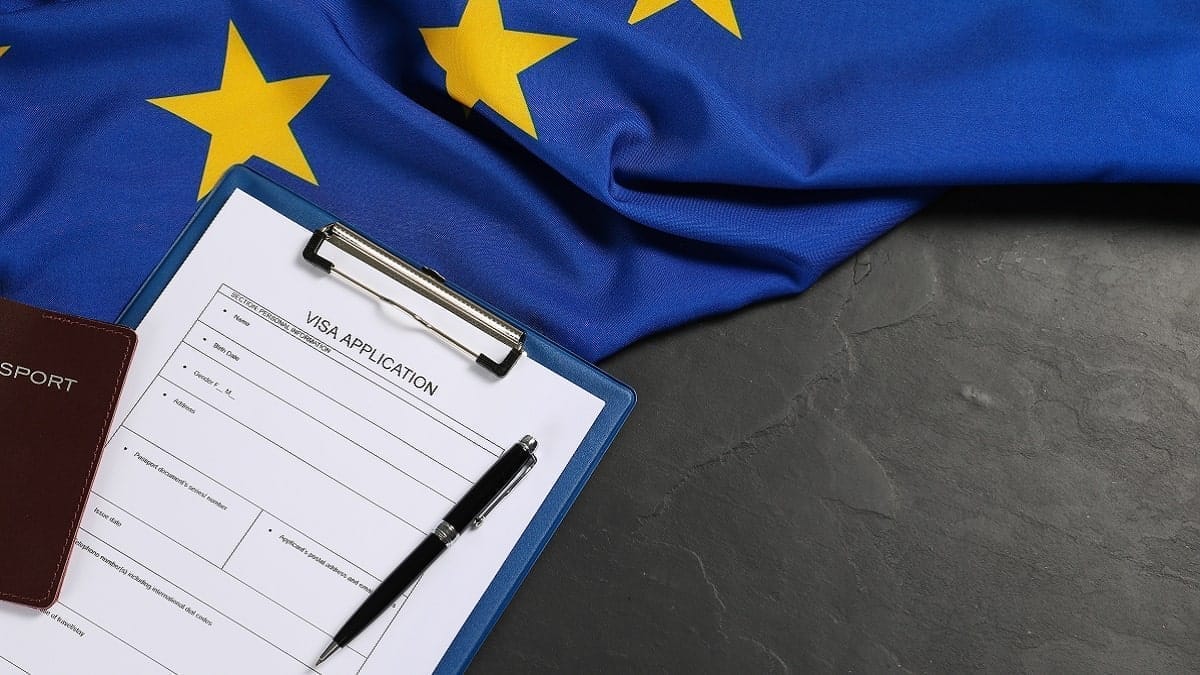 VISA APPLICATION
SECTION: PERSONAL INFORMATION
• Name
• Birth Date
• Gender F__ M__
• Address
• Passport document's series/ number
Issue date
• Applicant's postal address and email
telephone number(s) including international dial codes
of travel/stay
SPORT